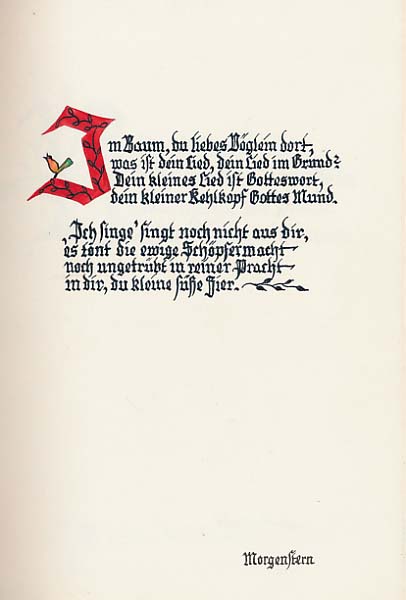 Im Baum, du liebes Vöglein dort,
was ist dein Lied, dein Lied im Grund?
Dein kleines Lied ist Gotteswort,
dein kleiner Kehlkopf Gottes Mund.
‚Ich singe‘ singt noch nicht aus dir,
es tönt die ewige Schöpfermacht
noch ungetrübt in reiner Pracht
in dir, du kleine süße Zier.
Morgenstern